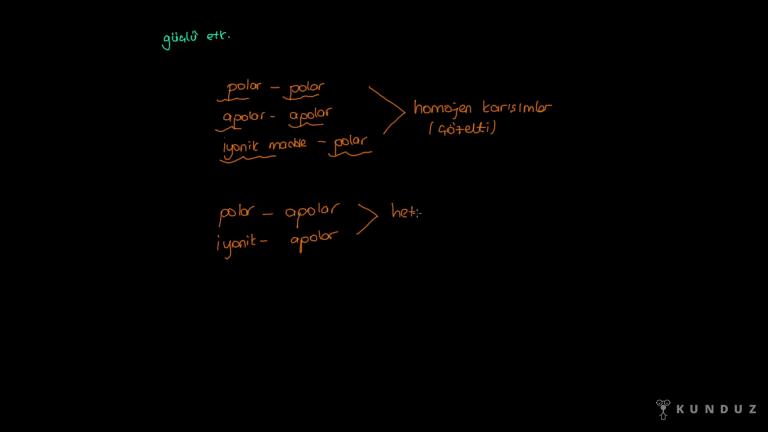 güçlü etk.
polar - polar
apolar - apolar
iyonik madde - polar
homojen karışımlar
(çözelti)
polar - apolar
iyonik - apolar
het
KUNDUZ